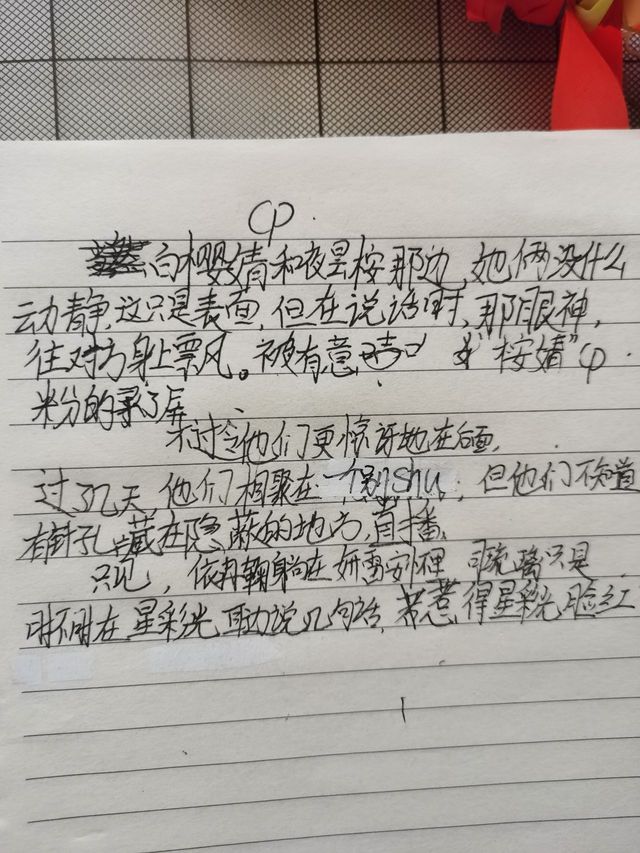 cp.
白樱婧和夜昙桉那边,她俩没什么
动静,这只是表面,但在说话时,那眼神,
往对方身上飘风。被有意 "桉婧"cp
米分的录了屏、
不过令他们更惊讶地在后面.
过了几天,他们相聚在一个别shu,但他们不知道
有针孔藏在隐蔽的地方,直播.
只见,依 鞠躬在妍 怀里 只是
时不时在星彩光耳边说几句话,惹得星彩光脸红